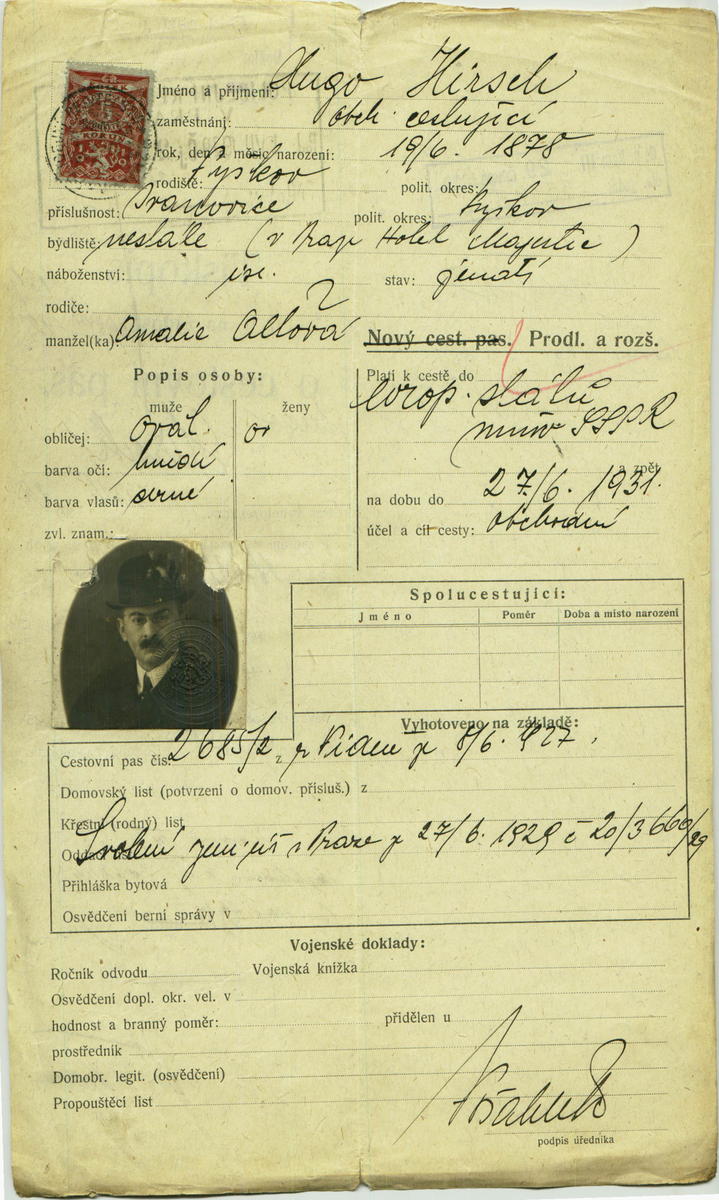 Jméno a příjmení: Hugo Hirsch
zaměstnání: obch. cestující
rok, den a měsíc narození: 19/6. 1878
rodiště: Vyškov polit. okres:
příslušnost: Ivanovice polit. okres: Vyškov
bydliště: nestále (v Praze Hotel Majestic)
náboženství: isr. stav: ženatí
rodiče: ?
manžel(ka): Amalie
Nový cest. pas. Prodl. a rozš.
Popis osoby:
Platí k cestě do
muže ženy
evrop. států
obličej: oval. ov
SSSR
barva očí: hnědé
a zpět
barva vlasů: černé
na dobu do 27/6. 1931.
zvl. znam.:
účel a cíl cesty: obchodní
KORUN
Spolucestující:
Jméno Poměr Doba a místo narození
Vyhotoveno na základě:
Cestovní pas čís. 2685/2 z Vídeň z 8/6. 1927.
Domovský list (potvrzení o domov. přísluš.) z
Křestní (rodný) list
Svolení zem. úř. v Praze z 27/6. 1929 č 20/3660/29
Přihláška bytová
Osvědčení berní správy v
Vojenské doklady:
Ročník odvodu Vojenská knížka
Osvědčení dopl. okr. vel. v
hodnost a branný poměr: přidělen u
prostředník
Domobr. legit. (osvědčení)
Propouštěcí list
podpis úředníka